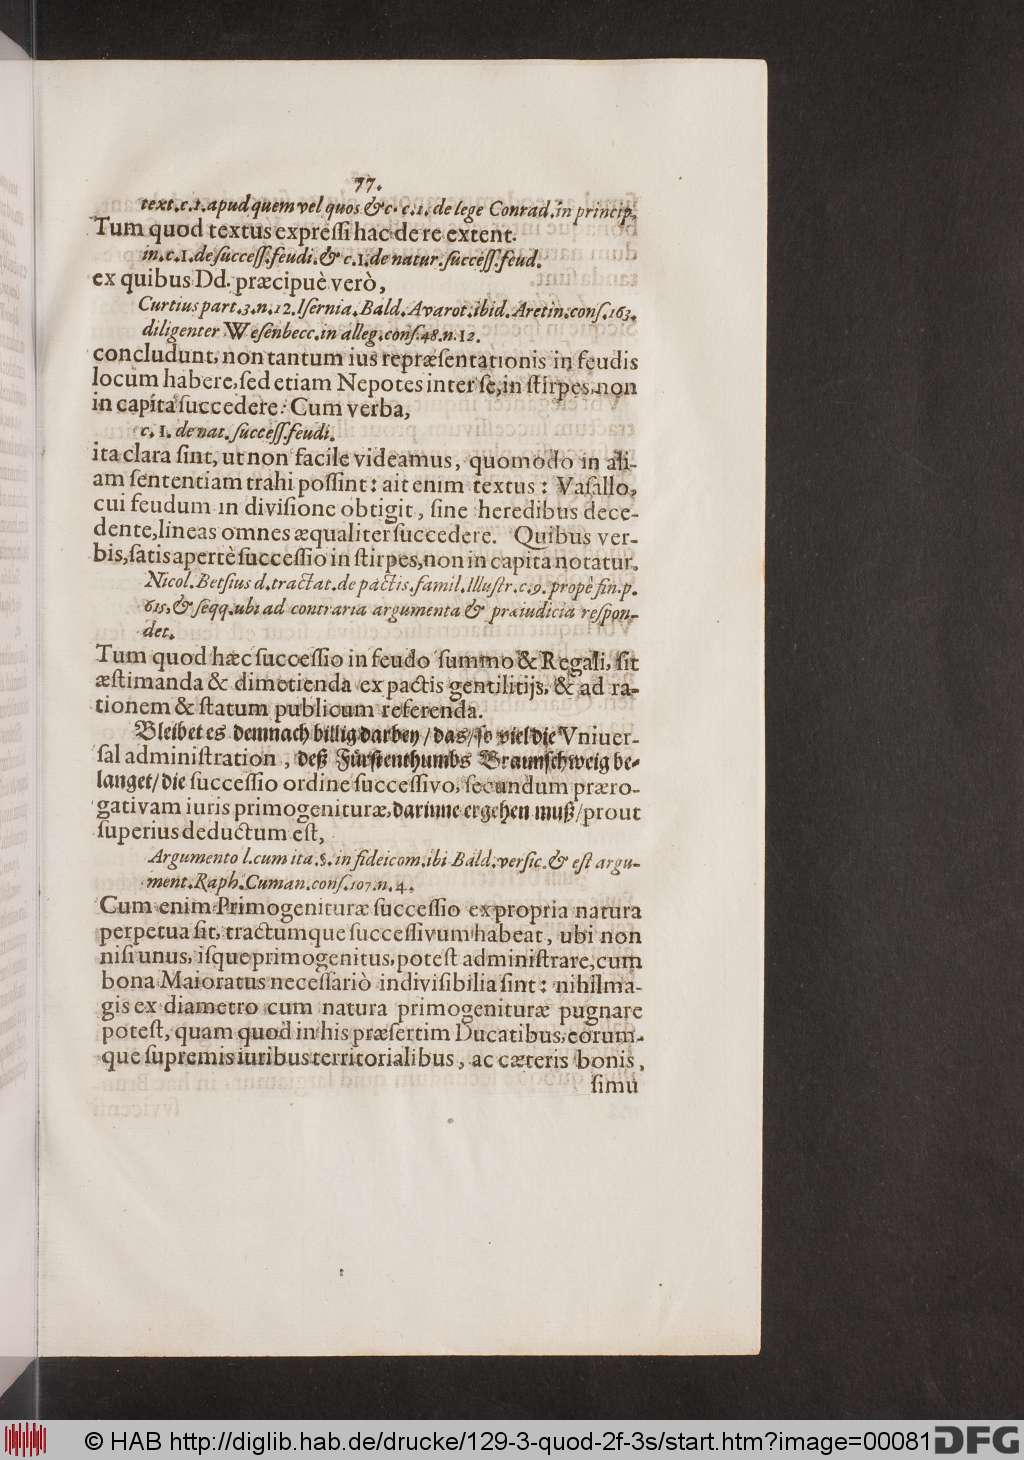 77.
text. c. 1. apud quem vel quos &c. c. 1. de lege Conrad. in princip.
Tum quod textus expreſſi hac de re extent.
in. c. 1. de ſucceſſ. feudi. & c. 1. de natur. ſucceſſ. feud.
ex quibus Dd. præcipuè verò,
Curtius part. 3. n. 12. Iſernia. Bald. Avarot. ibid. Aretin. conſ. 163.
diligenter Weſenbecc. in alleg. conſ. 48. n. 12.
concludunt, non tantum ius repræſentationis in feudis
locum habere, ſed etiam Nepotes inter ſe, in ſtirpes, non
in capita ſuccedere: Cum verba,
c. 1. de nat. ſucceſſ. feudi.
ita clara ſint, ut non facile videamus, quomodo in ali-
am ſententiam trahi poſſint: ait enim textus: Vaſallo,
cui feudum in diviſione obtigit, ſine heredibus dece-
dente, lineas omnes æqualiter ſuccedere. Quibus ver-
bis, ſatis apertè ſucceſſio in ſtirpes, non in capita notatur.
Nicol. Betſius d. tractat. de pactis. famil. Illuſtr. c. 9. propè fin. p.
615. & ſeqq. ubi ad contraria argumenta & præiudicia reſpon-
det.
Tum quod hæc ſucceſſio in feudo ſummo & Regali, ſit
æſtimanda & dimetienda ex pactis gentilitijs, & ad ra-
tionem & ſtatum publicum referenda.
Bleibet es demnach billig darbey / das / ſo viel die Vniver-
ſal adminiſtration, deß Fürſtenthumbs Braunſchweig be-
langet / die ſucceſſio ordine ſucceſſivo, ſecundum præro-
gativam iuris primogenituræ, darinne ergehen muß / prout
ſuperius deductum eſt,
Argumento l. cum ita. §. in fideicom. ibi Bald. verſic. & eſt argu-
ment. Raph. Cuman. conſ. 107. n. 4.
Cum enim Primogenituræ ſucceſſio ex propria natura
perpetua ſit, tractumque ſucceſſivum habeat, ubi non
niſi unus, iſque primogenitus, poteſt adminiſtrare, cum
bona Maioratus neceſſariò indiviſibilia ſint: nihil ma-
gis ex diametro cum natura primogenituræ pugnare
poteſt, quam quod in his præſertim Ducatibus, eorum-
que ſupremis iuribus territorialibus, ac cæteris bonis,
ſimu
© HAB http://diglib.hab.de/drucke/129-3-quod-2f-3s/start.htm?image=00081
DFG